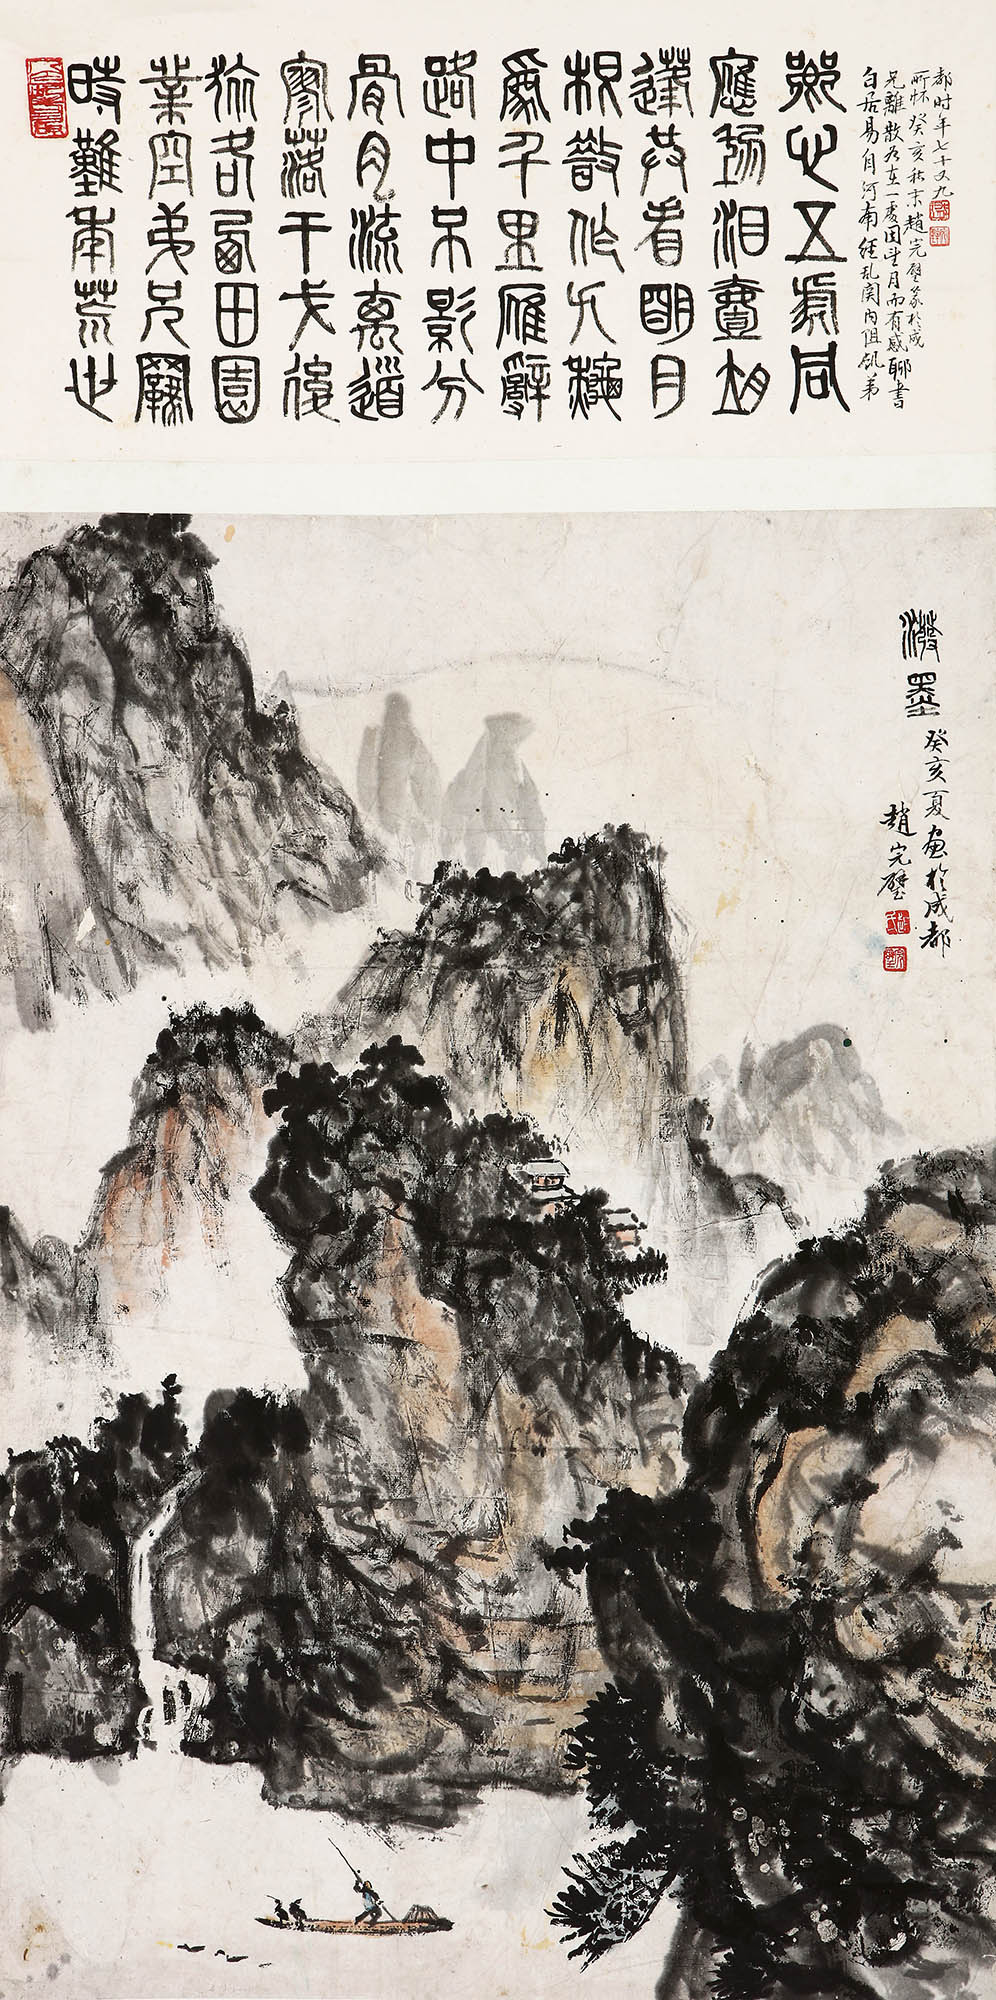 時難年荒世
業空弟兄羈
旅各西田園
寥落干戈後
骨月流離道
路中吊影分
為千里雁辭
根散作九秋
蓬共看明月
應垂泪壹夜
鄉心五處同
白居易自河南經乱関内阻飢弟
兄離散各在一處因望月而有感聊書
所怀癸亥秋末趙完璧篆於成
都时年七十又九
潑墨癸亥夏画於成都
趙完璧